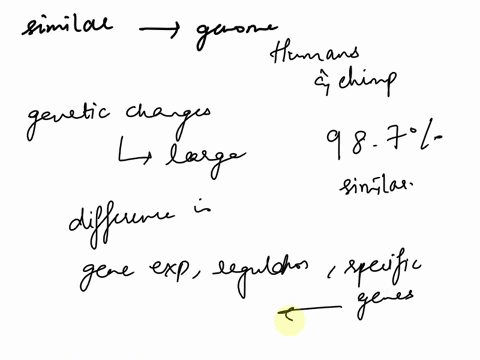 similar → genome
Humans
& chimp
genetic changes
↳ large
98.7%
similar.
difference in
gene exp, regulation, specific
genes